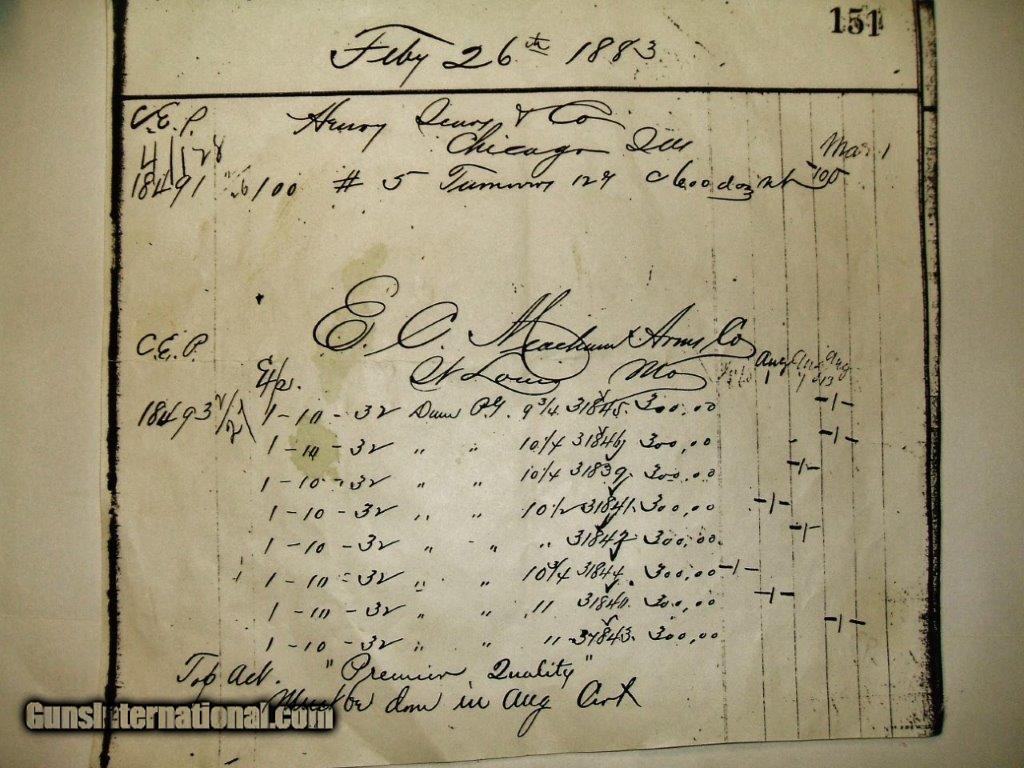 151
Feby 26th 1883
C.E.P. Henry & Co
Chicago Ills Mar 1
18491 100 # 5 doz 100
C.E.P. E. C. Meacham Arms Co
St Louis Mo Aug Aug
18493 1-10-32 Dam P.G. 9 3/4 31845. 300,00 -1-
1-10-32 " " 10 1/4 31846 300,00 -1-
1-10-32 " " 10 1/4 31839. 300,00 -1-
1-10-32 " " 10 1/2 31841. 300,00 -1-
1-10-32 " " " 31842 300,00. -1-
1-10-32 " " 10 3/4 31844. 300,00 -1-
1-10-32 " " 11 31840. 300,00 -1-
1-10-32 " " 11 31843. 300,00 -1-
Top act. "Premier Quality"
Must be done in Aug
GunsInternational.com